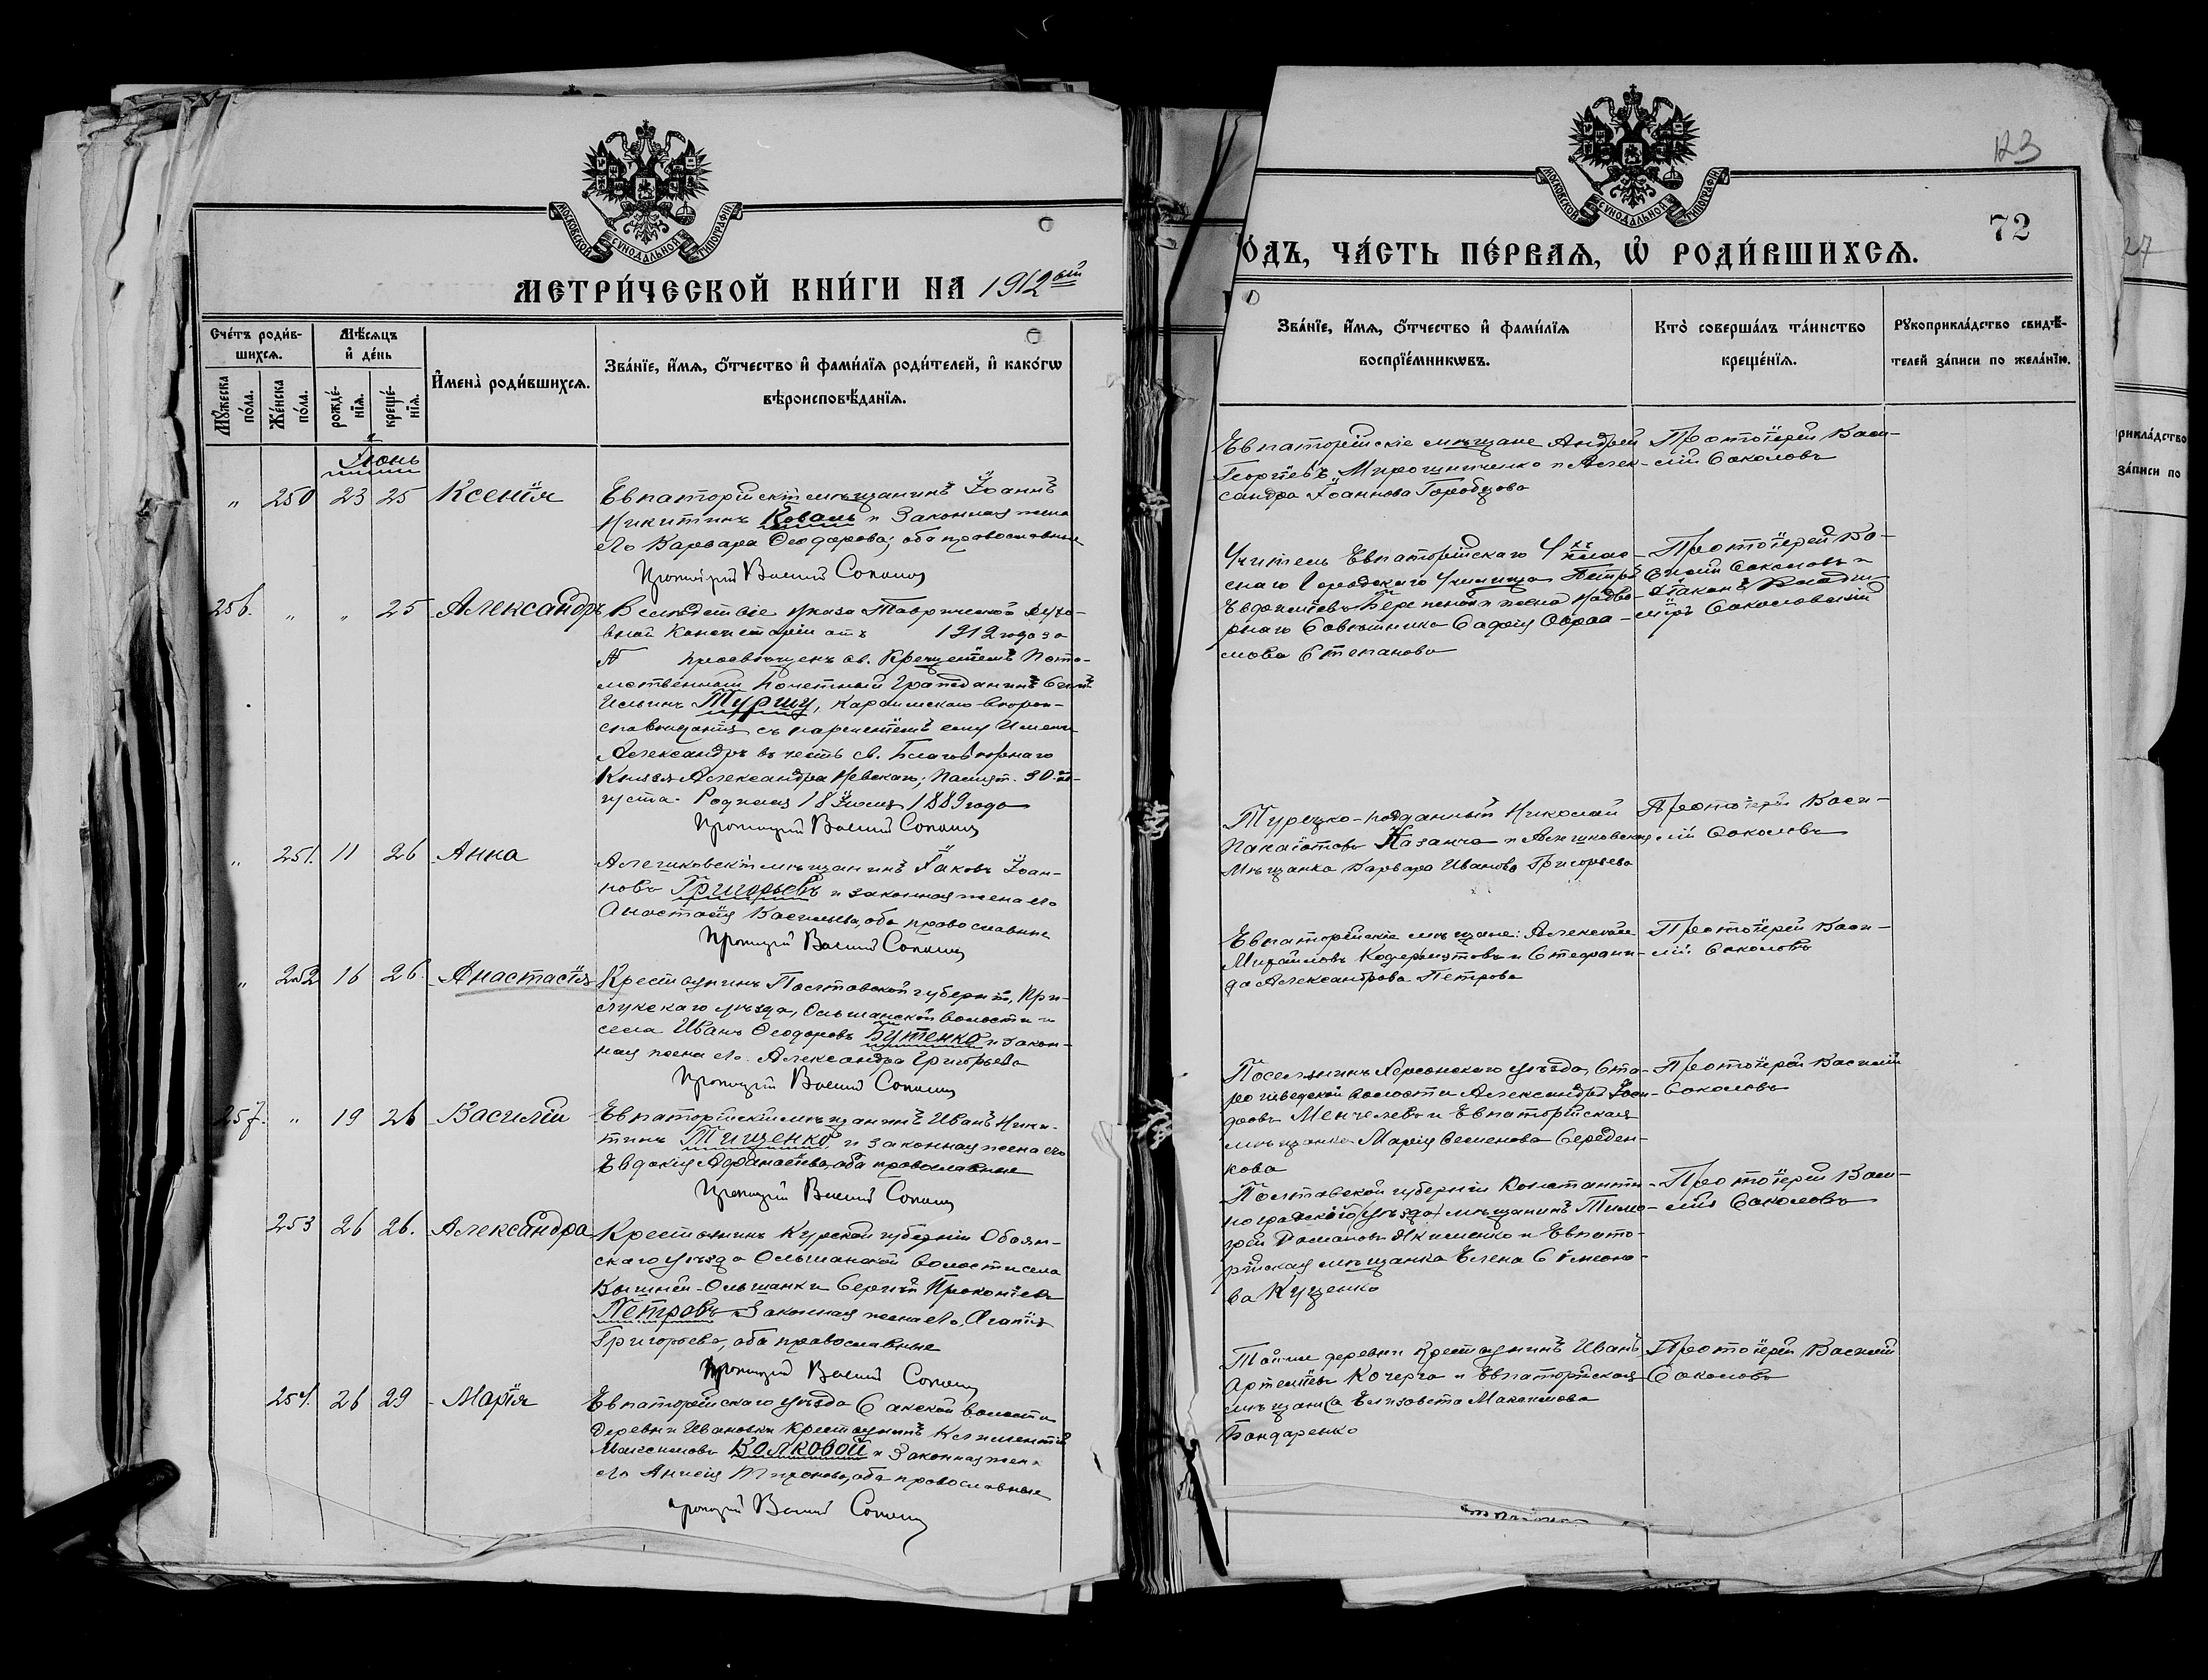 МОСКОВСКОЙ СѴНОДАЛЬНОЙ ТИПОГРАФІИ
МЕТРИ́ЧЕСКОЙ КНИ́ГИ НА 1912ый
Сче́тъ роди́в-
шихсѧ.
Мѣ́сѧцъ
и҆ де́нь
Мꙋ́жеска
по́ла.
Же́нска
по́ла.
рожде́-
нїѧ.
креще́-
нїѧ.
И҆мена̀ роди́вшихсѧ.
Зва́нїе, и҆́мѧ, ѻ҆́тчество и҆ фами́лїѧ роди́телей, и҆ како́гѡ
вѣроисповѣ́данїѧ.
Іюнь
" 250 23 25 Ксенія
Евпаторійскій мѣщанинъ Іоаннъ
Никитинъ Коваль и законная жена
его Варвара Ѳеодорова; оба православные
Протоіерей Василій Соколовъ
256. " " 25 Александръ
Вслѣдствіе указа Таврической духо-
вной Консисторіи отъ 1912 года за
№ просвѣщенъ св. Крещеніемъ Пото-
мственный Почетный Гражданинъ
Ильинъ Туршу, Караимскаго вѣрои-
сповѣданія съ нареченіемъ ему имени
Александръ въ честь св. Благовѣрнаго
Князя Александра Невскаго; Память 30 ав-
густа. Родился 18 1889 года
Протоіерей Василій Соколовъ
" 251. 11 26 Анна
Алешковскій мѣщанинъ Іаковъ Іоан-
новъ Григорьевъ и законная жена его
Анастасія Васильева, оба православные
Протоіерей Василій Соколовъ
" 252 16 26. Анастасія
Крестьянинъ Полтавской губерніи, При-
лукскаго уѣзда, Ольшанской волости и
села Иванъ Ѳеодоровъ Бутенко и закон-
ная жена его Александра Григорьева
Протоіерей Василій Соколовъ
257. " 19 26 Василій
Евпаторійскій мѣщанинъ Иванъ Ники-
тинъ Тищенко и законная жена его
Евдокія Аѳанасіева, оба православные
Протоіерей Василій Соколовъ
253 26 26. Александра
Крестьянинъ Курской губерніи Обоян-
скаго уѣзда Ольшанской волости села
Вышней-Ольшанки Сергій Прокопіевъ
Петровъ и законная жена его, Агапія
Григорьева, оба православные
Протоіерей Василій Соколовъ
254. 26 29 Марія
Евпаторійскаго уѣзда Сакской волости
деревни Ивановки крестьянинъ Климентій
Максимовъ Волковой и законная жена
его Анисія Тихонова, оба православные
Протоіерей Василій Соколовъ
123
МОСКОВСКОЙ СѴНОДАЛЬНОЙ ТИПОГРАФІИ
72
ОДЪ, ЧА́СТЬ ПЕ́РВАѦ, Ѡ҆ РОДИ́ВШИХСѦ.
Зва́нїе, и҆́мѧ, ѻ҆́тчество и҆ фами́лїѧ
воспрїе́мникѡвъ.
Кто̀ соверша́лъ та́инство
креще́нїѧ.
Рꙋкоприкла́дство свидѣ́-
телей за́писи по жела́нїю.
Евпаторійскіе мѣщане Андрей
Георгіевъ Мирошниченко и Алек-
сандра Іоаннова Горобцова
Протоіерей Васи-
лій Соколовъ
Учитель Евпаторійскаго 4хъ клас-
снаго Городского Училища Петръ
Евдокимовъ и жена Надво-
рнаго Совѣтника Софія Авраа-
мова Степанова
Протоіерей Ва-
силій Соколовъ и
Діаконъ Влади-
міръ Соколовскій
Турецко-подданный Николай
Панаіотовъ Казанжа и Алешковская
Мѣщанка Варвара Иванова Григорьева
Протоіерей Васи-
лій Соколовъ
Евпаторійскіе мѣщане: Алексѣй
Михайловъ и Стефани-
да Александрова Петрова
Протоіерей Васи-
лій Соколовъ
Поселянинъ Херсонскаго уѣзда, Ста-
рошведской волости Александръ
Менчелевъ и Евпаторійская
мѣщанка Марія Семенова Середен-
кова
Протоіерей Василій
Соколовъ
Полтавской губерніи Константи-
ноградскаго уѣзда мѣщанинъ Тимо-
фей Романовъ Якименко и Евпато-
рійская мѣщанка Елена Сімеоно-
ва Куценко
Протоіерей Васи-
лій Соколовъ
Той-же деревни крестьянинъ Иванъ
Артеміевъ Кочерга и Евпаторійская
мѣщанка Елизавета Максимова
Бондаренко
Протоіерей Василій
Соколовъ
27
прикла́дство
за́писи по